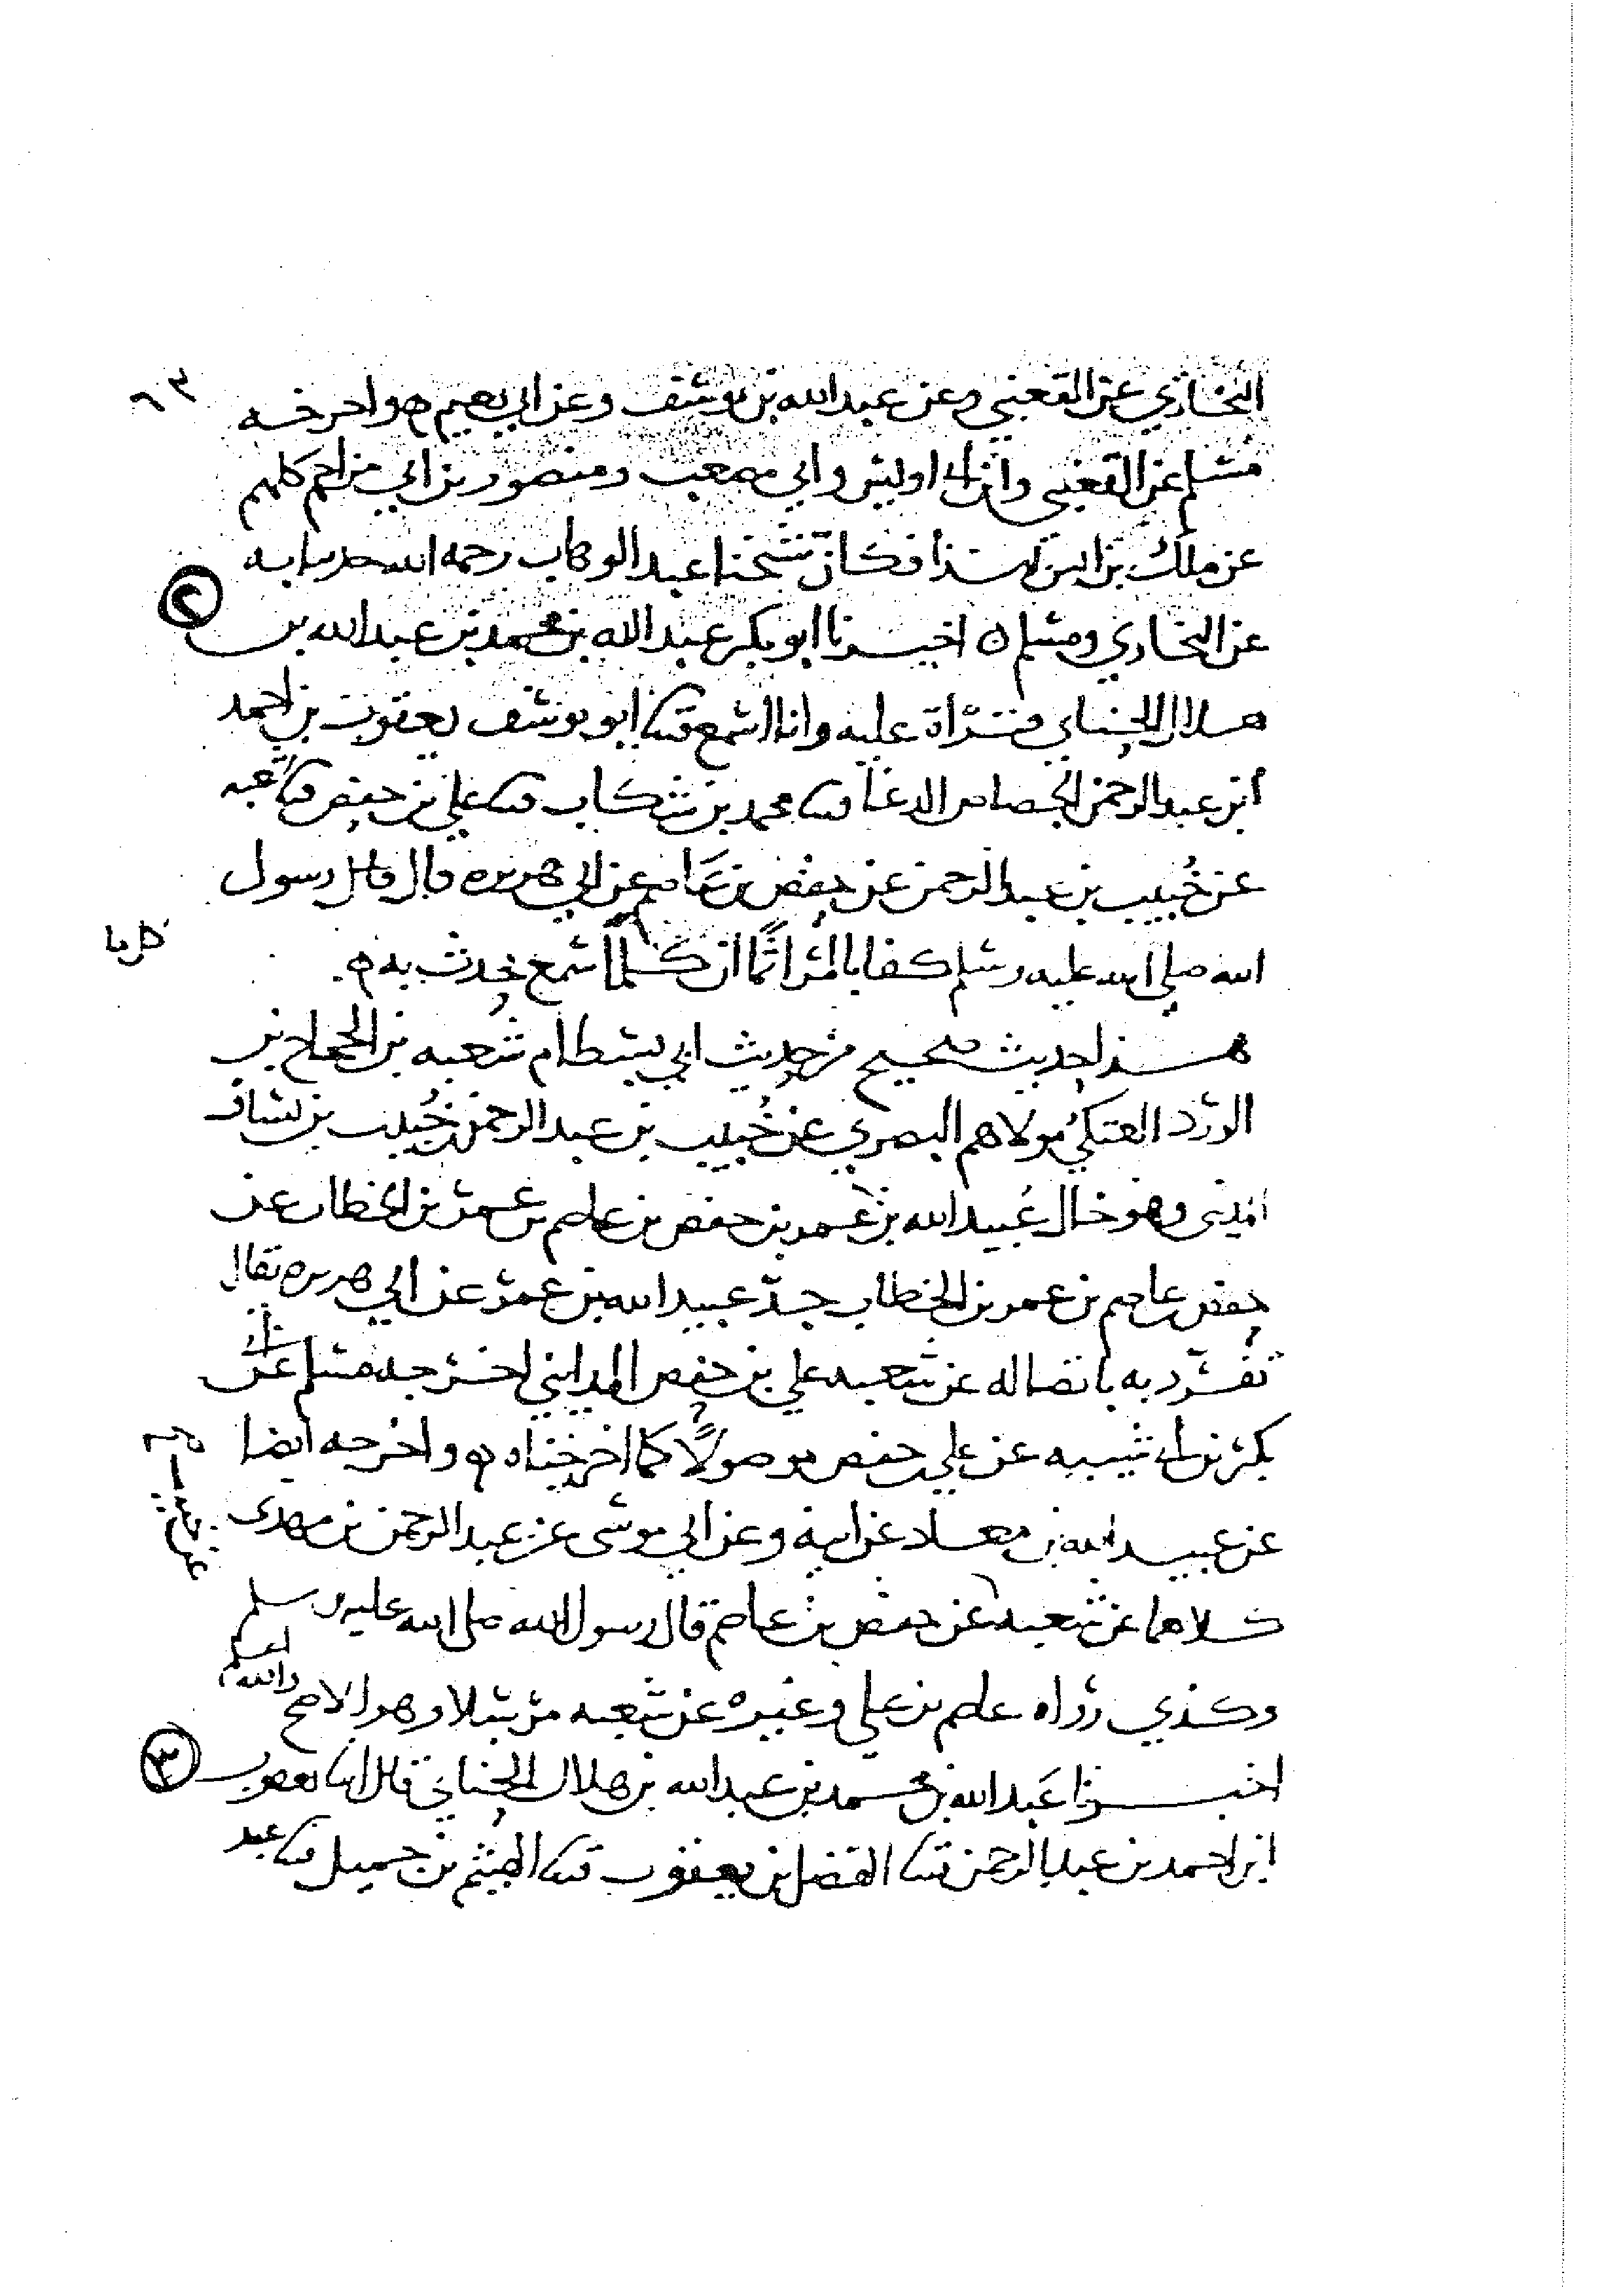 ٦٣
البخاري عن القعنبي وعن عبد الله بن يوسف وعن ابي نعيم ه واخرجه
مسلم عن القعنبي وابن ابي اويس وابي مصعب ومنصور بن ابي مزاحم كلهم
عن ملك بن انس هذا فكان شيخنا عبد الوهاب رحمه الله حدثنا به
عن البخاري ومسلم ه اخبرنا ابو بكر عبد الله بن محمد بن عبد الله بن
٢
هلال الحنائي قراة عليه وانا اسمع ثنا ابو يوسف يعقوب بن احمد
ابن عبد الرحمن الجصاص الدعا ثنا محمد بن شكاب ثنا علي بن حفص ثنا شعبه
عن خُبيب بن عبد الرحمن عن حفص بن عاصم عن ابي هريره قال قال رسول
الله صلى الله عليه وسلم كفا بالمرْ اثمًا ان كلما سمع حدث به ه
كل ما
هذا حديث صحيح من حديث ابي بسطام شعبه بن الحجاج بن
الورد العتكي مولاهم البصري عن خُبيب بن عبد الرحمن بن خُبيب بن يساف
المديني وهو خال عُبيد الله بن عمر بن حفص بن عاصم بن عمر بن الخطاب عن
حفص بن عاصم بن عمر بن الخطاب جدّ عبيد الله بن عمر عن ابي هريره يقال
تفرد به باتصاله عن شعبه علي بن حفص المدايني اخرجه مسلم عن ابي
بكر بن ابي شيبه عن علي بن حفص موصولًا كما اخرجناه ه واخرجه ايضا
عن عبيد الله بن معاذ عن ابيه وعن ابي موسى عن عبد الرحمن بن مهدى
عن خبيب
كلاهما عن شعبه عن حفص بن عاصم قال رسول الله صلى الله عليه وسلم
وكذي رواه عاصم بن علي وغيره عن شعبه مرسلا وهو الاصح والله اعلم
اخبرنا عَبد الله بن محمد بن عبد الله بن هلال الحنائي قال ابنا يعقوب
٣
ابن احمد بن عبد الرحمن ثنا الفضل بن يعقوب ثنا الهيثم بن جميل ثنا عبد